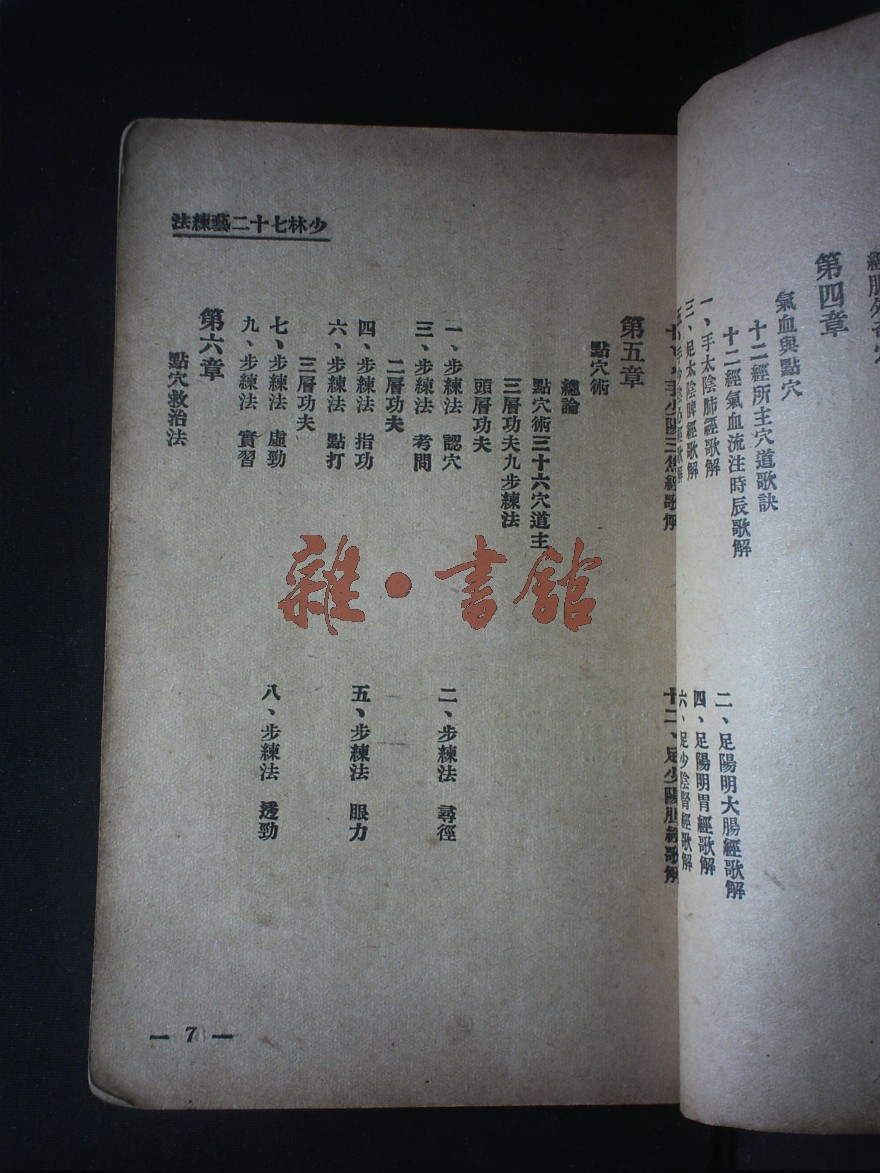 第四章
氣血與點穴
十二經所主穴道歌訣
十二經氣血流注時辰歌解
一、手太陰肺經歌解
二、足陽明大腸經歌解
三、足太陰脾經歌解
四、足陽明胃經歌解
六、足少陰腎經歌解
十二、足少陽胆經歌解
少林七十二藝練法
第五章
點穴術
總論
點穴術三十六穴道主
三層功夫九步練法
頭層功夫
一、步練法 認穴
二、步練法 尋徑
三、步練法 考問
二層功夫
四、步練法 指功
五、步練法 眼力
六、步練法 點打
三層功夫
七、步練法 虛勁
八、步練法 透勁
九、步練法 實習
第六章
點穴救治法
— 7 —
雜·書館